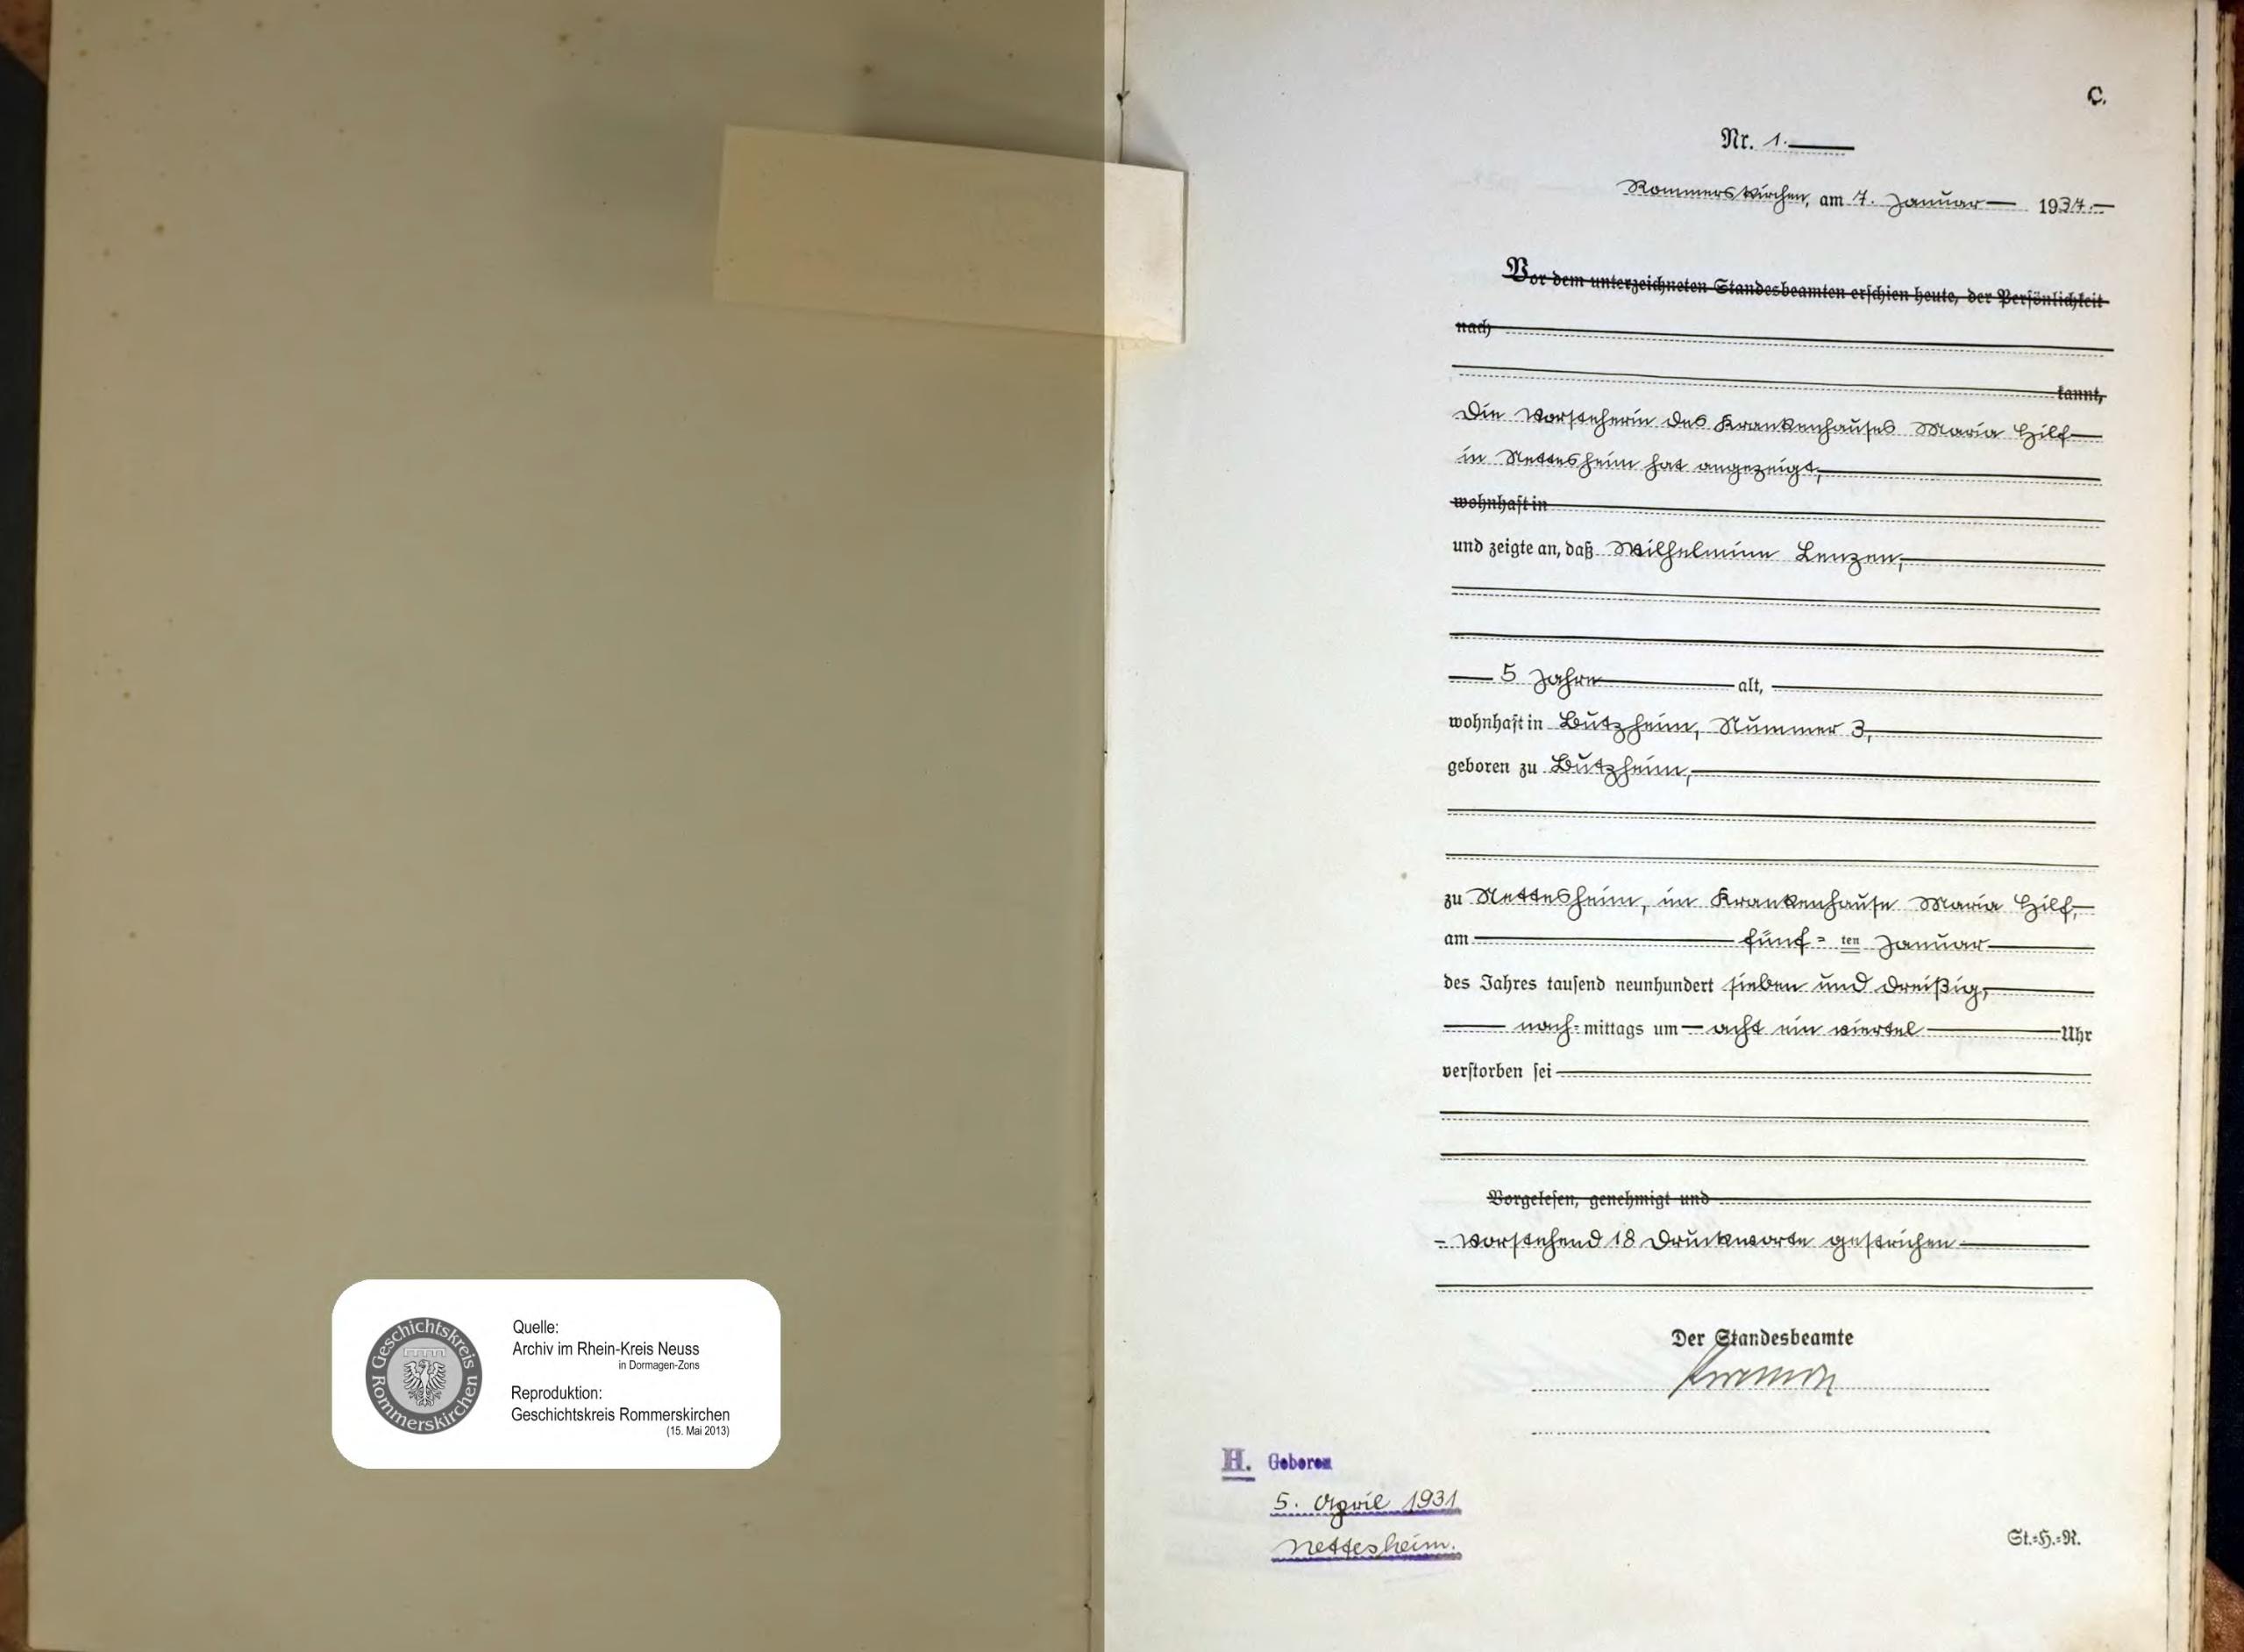 C.
Nr. 1.
Rommerskirchen, am 7. Januar 1937.
Vor dem unterzeichneten Standesbeamten erschien heute, der Persönlichkeit
nach
kannt,
Die Vorsteherin des Krankenhauses Maria Hilf
in Nettesheim hat angezeigt,
wohnhaft in
und zeigte an, daß Wilhelmine Lenzen,
5 Jahre alt,
wohnhaft in Butzheim, Nummer 3,
geboren zu Butzheim,
zu Nettesheim, im Krankenhause Maria Hilf,
am fünf=ten Januar
des Jahres tausend neunhundert sieben und dreißig,
nach=mittags um acht ein viertel Uhr
verstorben sei
Vorgelesen, genehmigt und
- Vorstehend 18 Druckworte gestrichen
Der Standesbeamte
H. Geboren
5. April 1931
Nettesheim.
St.=H.=R.
Geschichtskreis Rommerskirchen
Quelle:
Archiv im Rhein-Kreis Neuss
in Dormagen-Zons
Reproduktion:
Geschichtskreis Rommerskirchen
(15. Mai 2013)